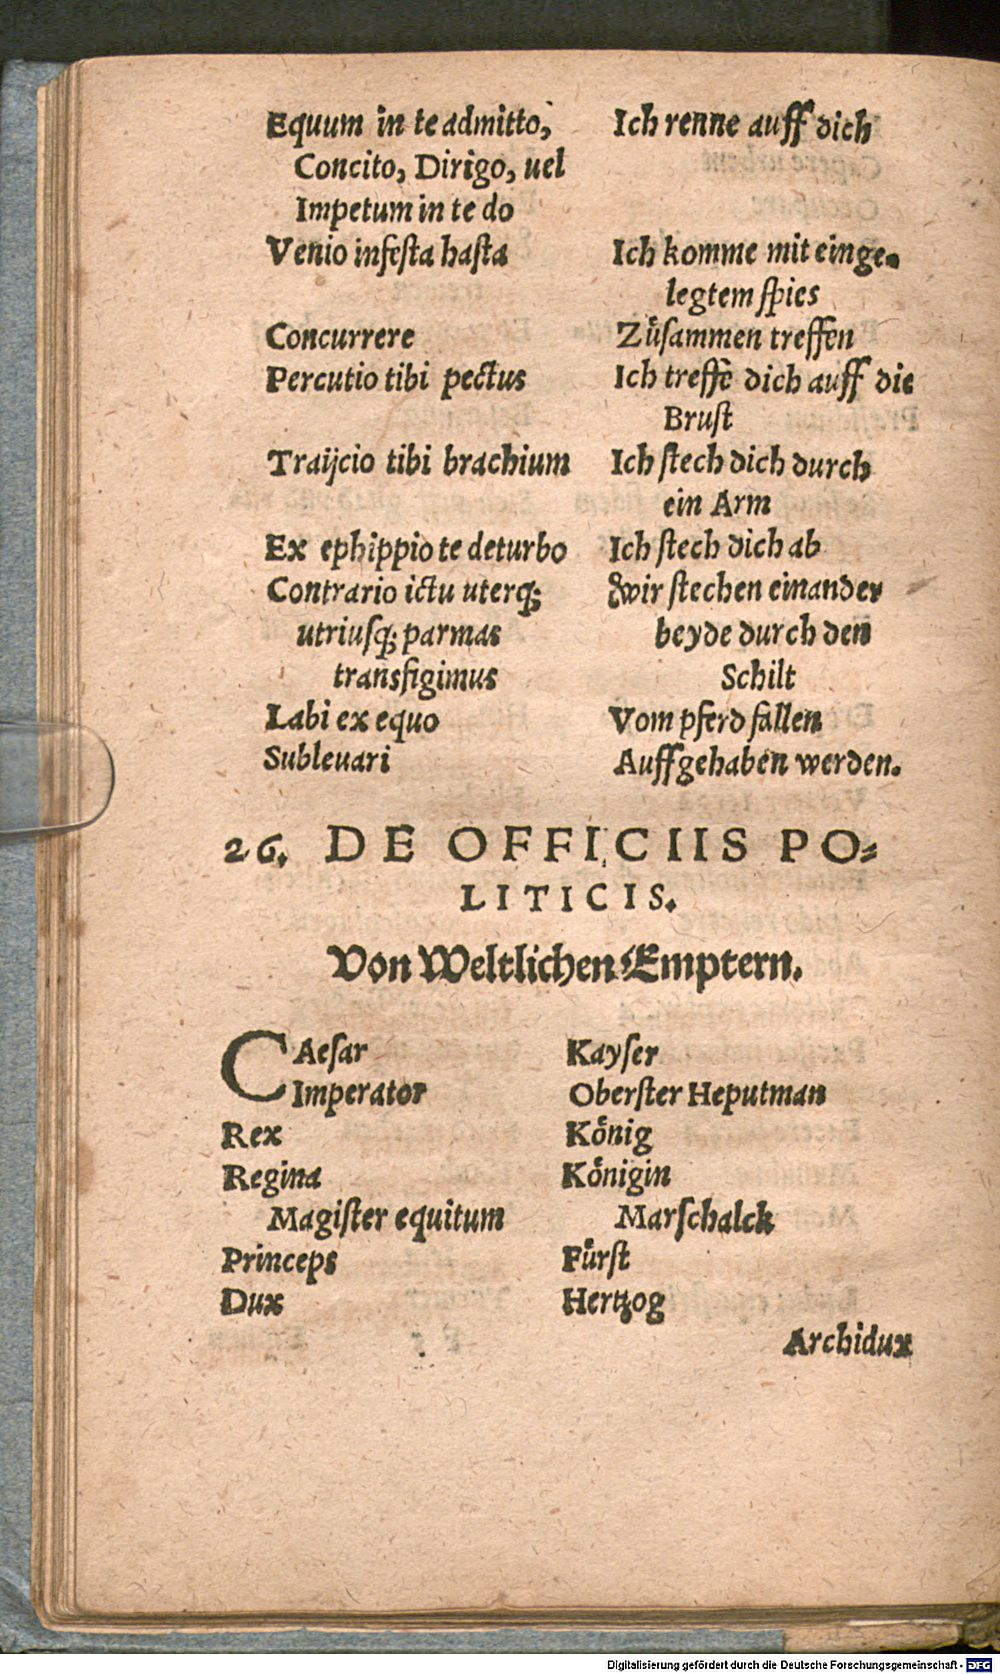 Equum in te admitto, Ich renne auff dich
Concito, Dirigo, uel
Impetum in te do
Venio infeſta haſta Ich komme mit einge⸗
legtem ſpies
Concurrere Zůſammen treffen
Percutio tibi pectus Ich treffē dich auff die
Bruſt
Traijcio tibi brachium Ich ſtech dich durch
ein Arm
Ex ephippio te deturbo Ich ſtech dich ab
Contrario ictu uterq; Wir ſtechen einander
utriuſq; parmas beyde durch den
transfigimus Schilt
Labi ex equo Vom pferd fallen
Subleuari Auffgehaben werden.
26. DE OFFICIIS PO⸗
LITICIS.
Von Weltlichen Emptern.
CAeſar Kayſer
Imperator Oberſter Heputman
Rex Koͤnig
Regina Koͤnigin
Magiſter equitum Marſchalck
Princeps Fuͤrſt
Dux Hertzog
Archidux
Digitalisierung gefördert durch die Deutsche Forschungsgemeinschaft - DFG